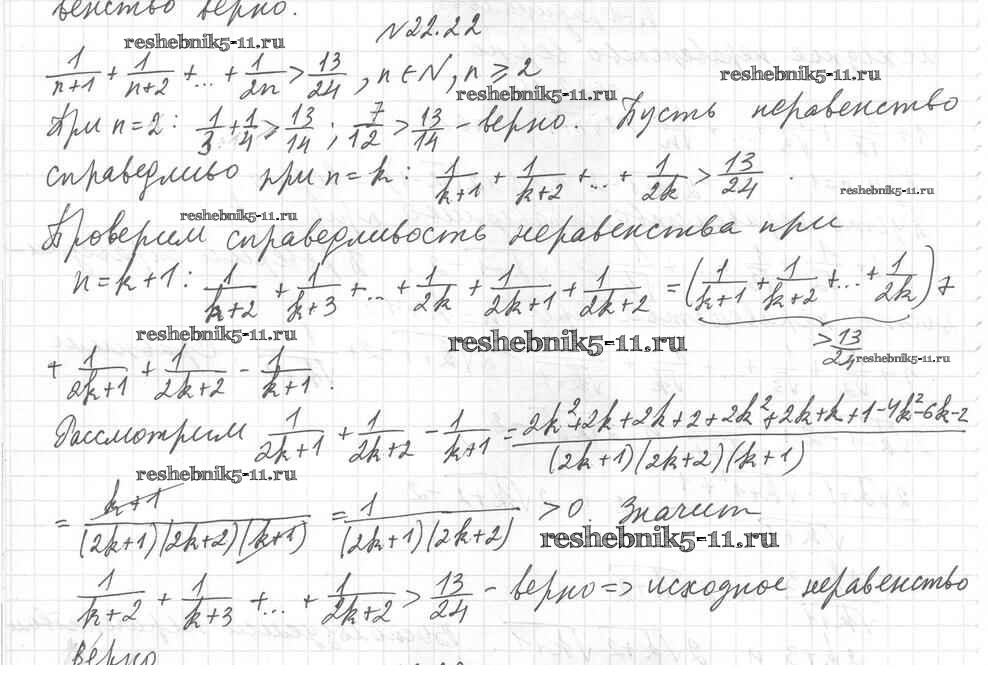 венство верно.
№22.22
reshebnik5-11.ru
1/(n+1) + 1/(n+2) + ... + 1/(2n) > 13/24, n ∈ N, n ⩾ 2
reshebnik5-11.ru
reshebnik5-11.ru
При n=2: 1/3 + 1/4 > 13/14; 7/12 > 13/14 - верно. Пусть неравенство
справедливо при n=k: 1/(k+1) + 1/(k+2) + ... + 1/(2k) > 13/24.
reshebnik5-11.ru
reshebnik5-11.ru
Проверим справедливость неравенства при
n=k+1: 1/(k+2) + 1/(k+3) + ... + 1/(2k) + 1/(2k+1) + 1/(2k+2) = (1/(k+1) + 1/(k+2) + ... + 1/(2k)) +
> 13/24
reshebnik5-11.ru
reshebnik5-11.ru
reshebnik5-11.ru
+ 1/(2k+1) + 1/(2k+2) - 1/(k+1).
Рассмотрим 1/(2k+1) + 1/(2k+2) - 1/(k+1) = (2k²+2k+2k+2+2k²+2k+k+1-4k²-6k-2)/((2k+1)(2k+2)(k+1))
reshebnik5-11.ru
= (k+1)/((2k+1)(2k+2)(k+1)) = 1/((2k+1)(2k+2)) > 0. Значит
reshebnik5-11.ru
1/(k+2) + 1/(k+3) + ... + 1/(2k+2) > 13/24 - верно => исходное неравенство
верно